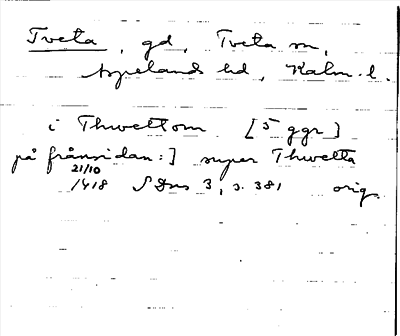 Tveta, gd, Tveta sn,
Aspelands hd, Kalm. l.
i Thwettom [5 ggr]
på frånsidan:] super Thwetta
21/10
1418 SDns 3, s. 381 orig.